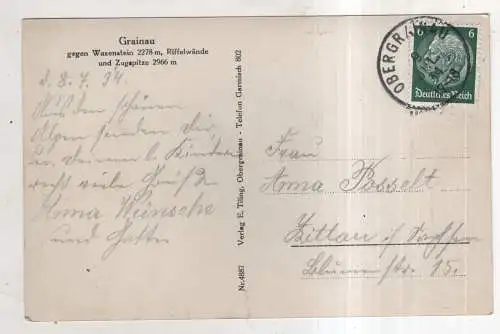 Grainau
gegen Waxenstein 2278 m, Riffelwände
und Zugspitze 2966 m
d. 8. 7. 34.
Aus den schönen
Alpen senden dir,
u. deinen l. Kindern
recht viele Grüße
Anna Wünsche
und Gatte
Verlag E. Tiling, Obergrainau - Telefon Garmisch 802
Nr. 4887
OBERGRAINAU
6 6
Deutsches Reich
Frau
Anna Posselt
Zittau i/ Sachsen
Blumenstr. 15.